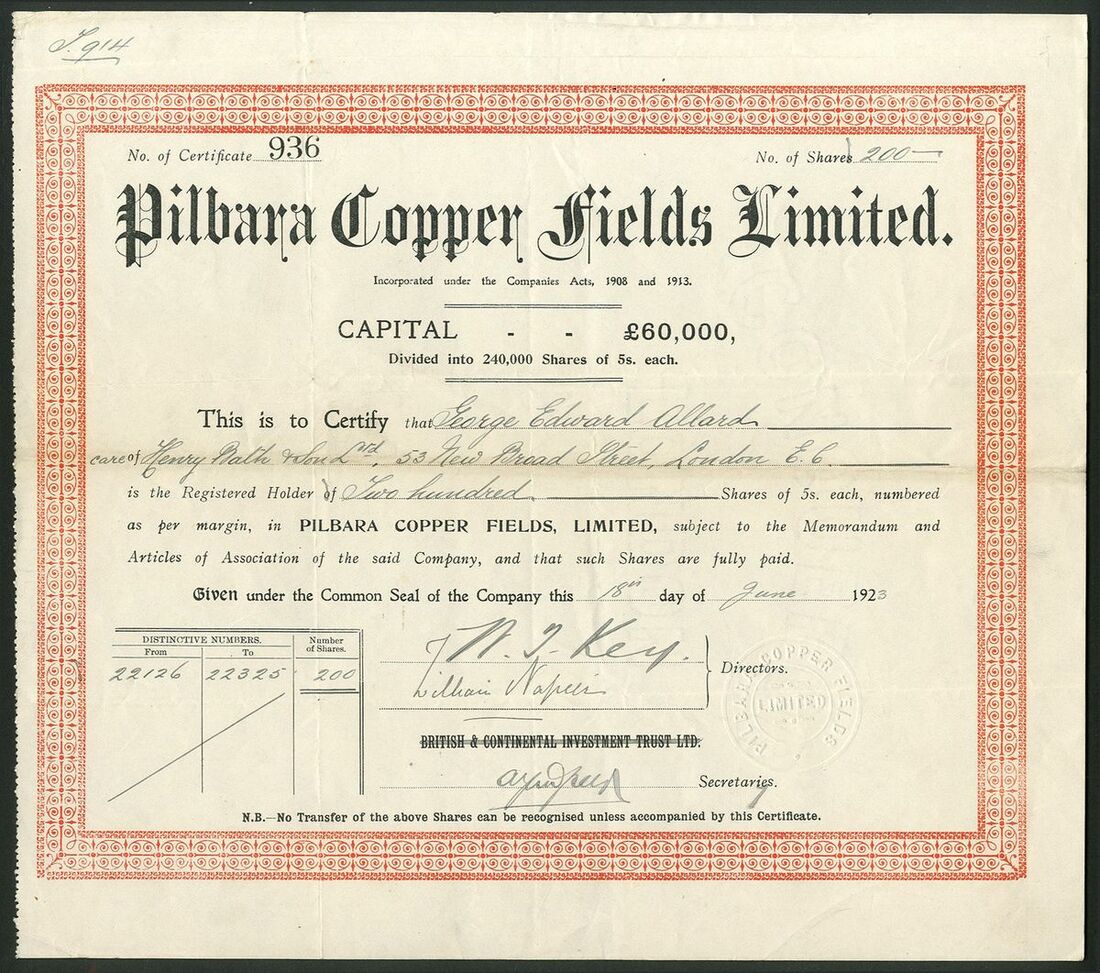 T. 914
No. of Certificate 936 No. of Shares 200
Pilbara Copper Fields Limited.
Incorporated under the Companies Acts, 1908 and 1913.
CAPITAL - - £60,000,
Divided into 240,000 Shares of 5s. each.
This is to Certify that George Edward Allard
care of Henry Bath & Son Ltd, 53 New Broad Street, London E.C.
is the Registered Holder of Two hundred Shares of 5s. each, numbered
as per margin, in PILBARA COPPER FIELDS, LIMITED, subject to the Memorandum and
Articles of Association of the said Company, and that such Shares are fully paid.
Given under the Common Seal of the Company this 18th day of June 1923
DISTINCTIVE NUMBERS. Number of Shares.
From To
22126 22325 200
N. J. Key.
William Napier
Directors.
PILBARA COPPER FIELDS
LIMITED
BRITISH & CONTINENTAL INVESTMENT TRUST LTD.
Secretaries.
N.B.—No Transfer of the above Shares can be recognised unless accompanied by this Certificate.